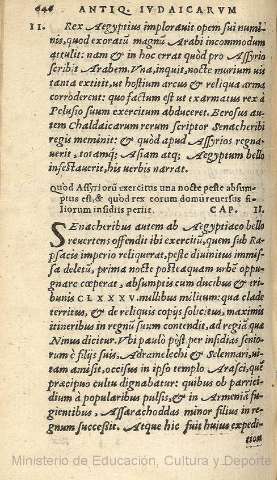 646 ANTIQ. IVDAICARVM
II. Rex Aegyptius implorauit opem sui numi-
nis, quod exoratū magnū Arabi incommodum
attulit: nam & in hoc errat quòd pro Assyrio
scribit Arabem. Vna, inquit, nocte murium uis
tanta extitit, ut hostium arcus & reliqua arma
corroderent: quo factum est ut exarmatus rex à
Pelusio suum exercitum abduceret. Berosus au-
tem Chaldaicarum rerum scriptor senacheribi
regis meminit: & quòd apud Assyrios regna-
uerit, totamq; Asiam atq; Aegyptum bello
infestauerit, his uerbis narrat.
Quòd Assyriorū exercitus una nocte peste absum-
ptus est, & quòd rex eorum domū reuersus fi-
liorum insidiis periit. CAP. II.
SEnacheribus autem ab Aegyptiaco bello
reuertens offendit ibi exercitū, quem sub Ra-
psacis imperio reliquerat, peste diuinitus immis-
sa deletū, prima nocte posteaquam urbē oppu-
gnare cœperat, absumptis cum ducibus & tri-
bunis CLXXXV. millibus militum: qua clade
territus, & de reliquis copijs solicitus, maximis
itineribus in regnū suum contendit, ad regiā quæ
Ninus dicitur. Vbi paulò pòst per insidias senio-
rum è filijs suis, Adramelechi & Selennari, ui-
tam amisit, occisus in ipso templo Arasci, quē
præcipuo cultu dignabatur: quibus ob parrici-
dium à popularibus pulsis, & in Armeniā fu-
gientibus, Assarachoddas minor filius in re-
gnum successit. Atque hic fuit huius expedi-
tion
Ministerio de Educación, Cultura y Deporte